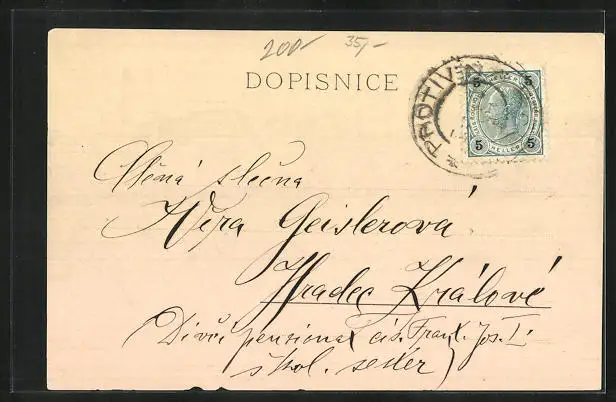 200-
35,-
DOPISNICE
PROTIVÍN
5 5
HELLER
5 5
Ctěná slečna
Věra Geislerová
Hradec Králové
(Dívčí pensionat cís. Frant. Jos. I.
škol. sester)